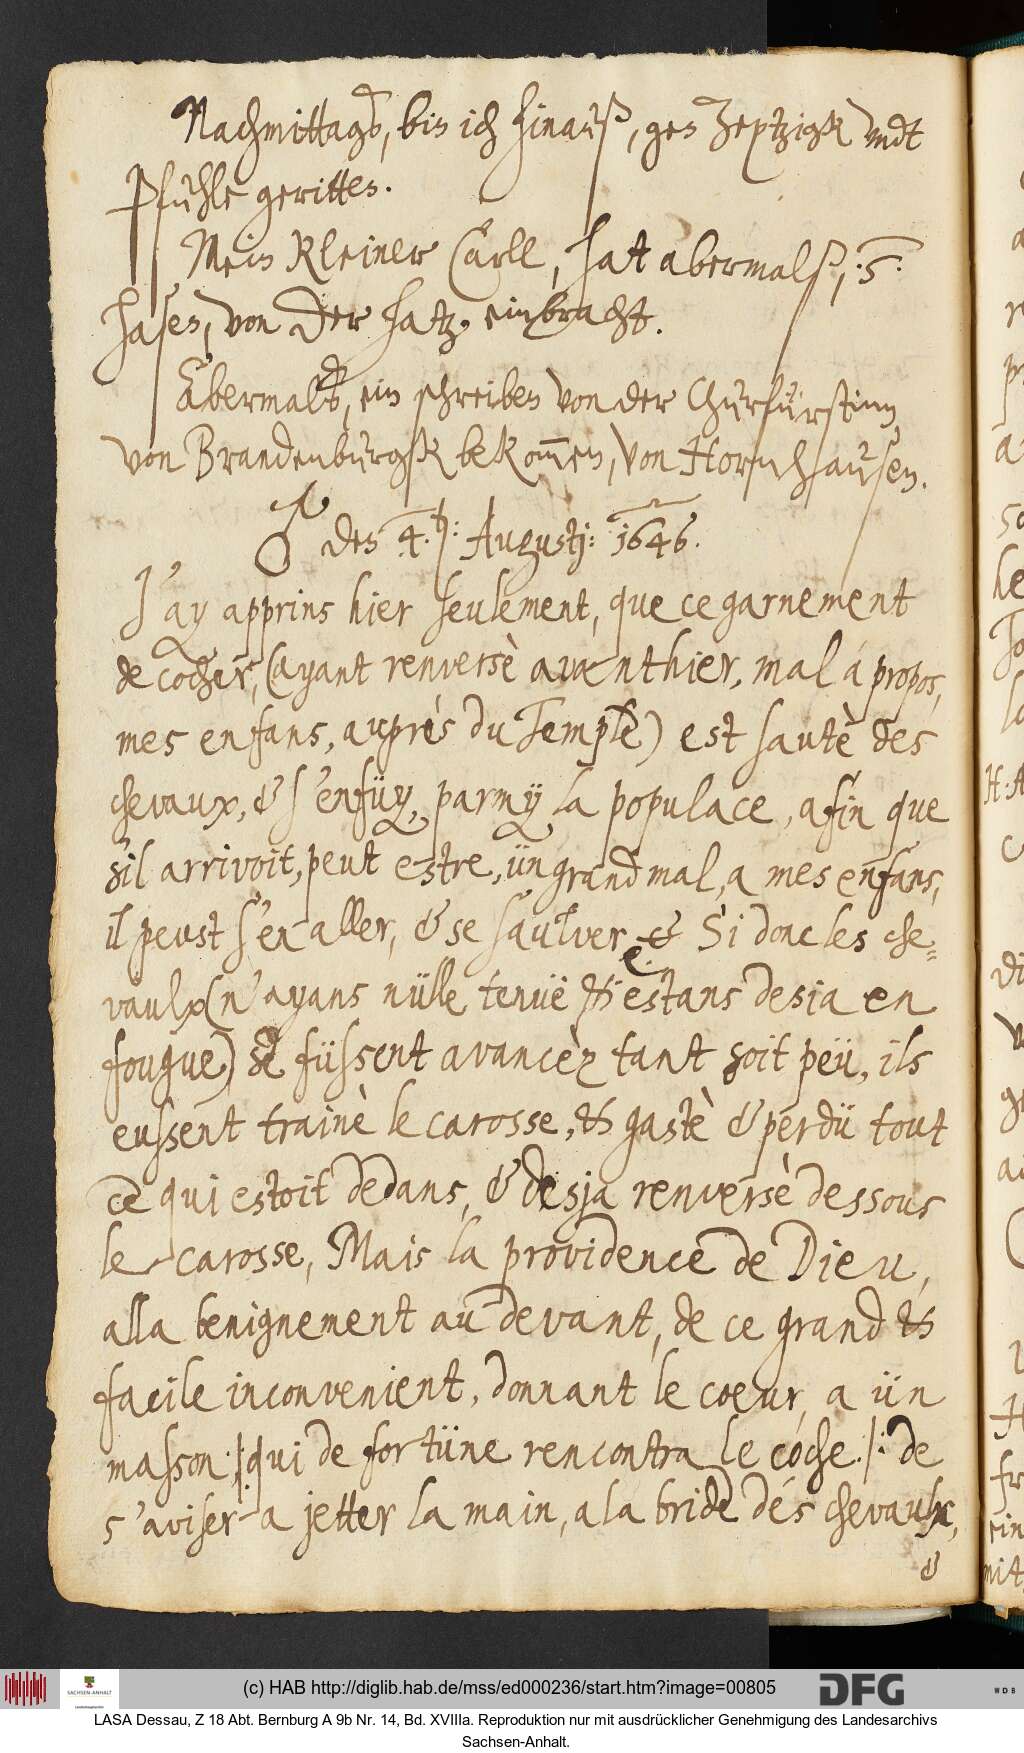 Nachmittags, bin ich hinauß, gen Zeptzigk vndt
Pfuhle geritten.
Mein Kleiner Carll, hat abermalß, ·5·
hasen, von der hatz, einbracht.
Abermalß, ein schreiben von der Churfürstinn,
von Brandenburgk bekom̅en, von Hornhausen.
♂ den 4.ten: Augustj: 1646.
J'ay apprins hier seulement, que ce garnement
de cocher, (ayant renversè avanthier, mal á propos,
mes enfans, auprés du Temple) est sautè des
chevaux, & s'enfüy, parmÿ la populace, afin que
s'il arrivoit, peut estre, ün grand mal, a mes enfans,
il peust s'en aller, & se saulver, & Si donc les che-
vaulx (n'ayans nülle tenuë & estans desia en
fougue) se füssent avancèz tant soit peü, ils
eussent trainè le carosse, & gastè & perdü tout
ce qui estoit dedans, & desja renversè dessous
le carosse, Mais la providence de Dieu,
alla benignement au devant, de ce grand &
facile inconvenient, donnant le coeur, a ün
masson :/: qui de fortüne rencontra le coche :/: de
s'aviser a jetter la main, a la bride dés chevaulx,
&
(c) HAB http://diglib.hab.de/mss/ed000236/start.htm?image=00805
SACHSEN-ANHALT
DFG
WDB
LASA Dessau, Z 18 Abt. Bernburg A 9b Nr. 14, Bd. XVIIIa. Reproduktion nur mit ausdrücklicher Genehmigung des Landesarchivs
Sachsen-Anhalt.